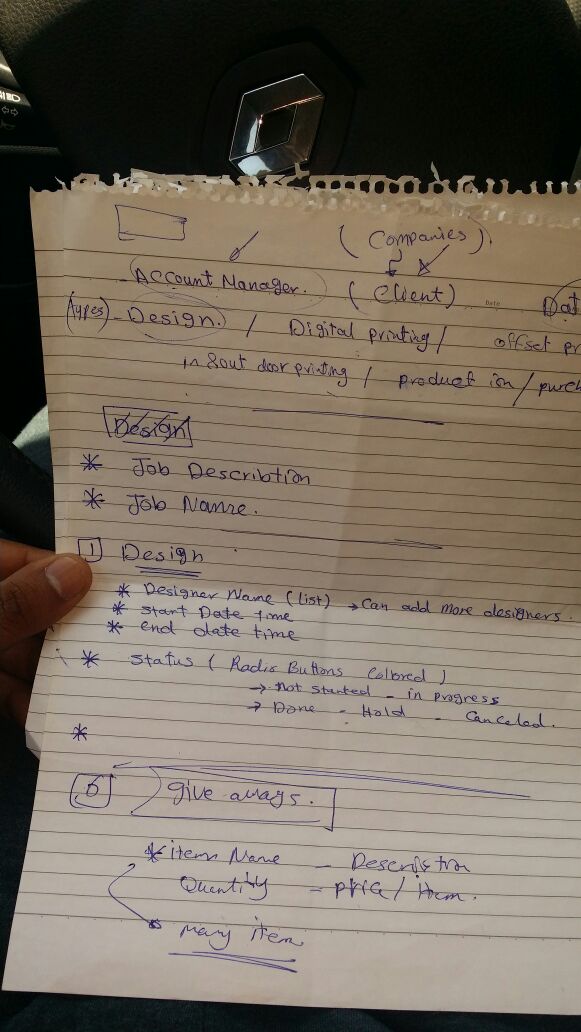 (Companies).
- Account Manager. (Client) Date Dat
(types) - Design. / Digital printing / offset pr
in & out door printing / product ion / purch
Design
* Job Describtion
* Job Name.
1 Design
* Designer Name (list) → Can add more designers.
* start Date time
* end date time
* status ( Radio Buttons Colored )
→ Not started - in progress
→ Done - Hold - Canceled.
*
give aways.
* item Name - Description
Quantity - price / Item.
many item